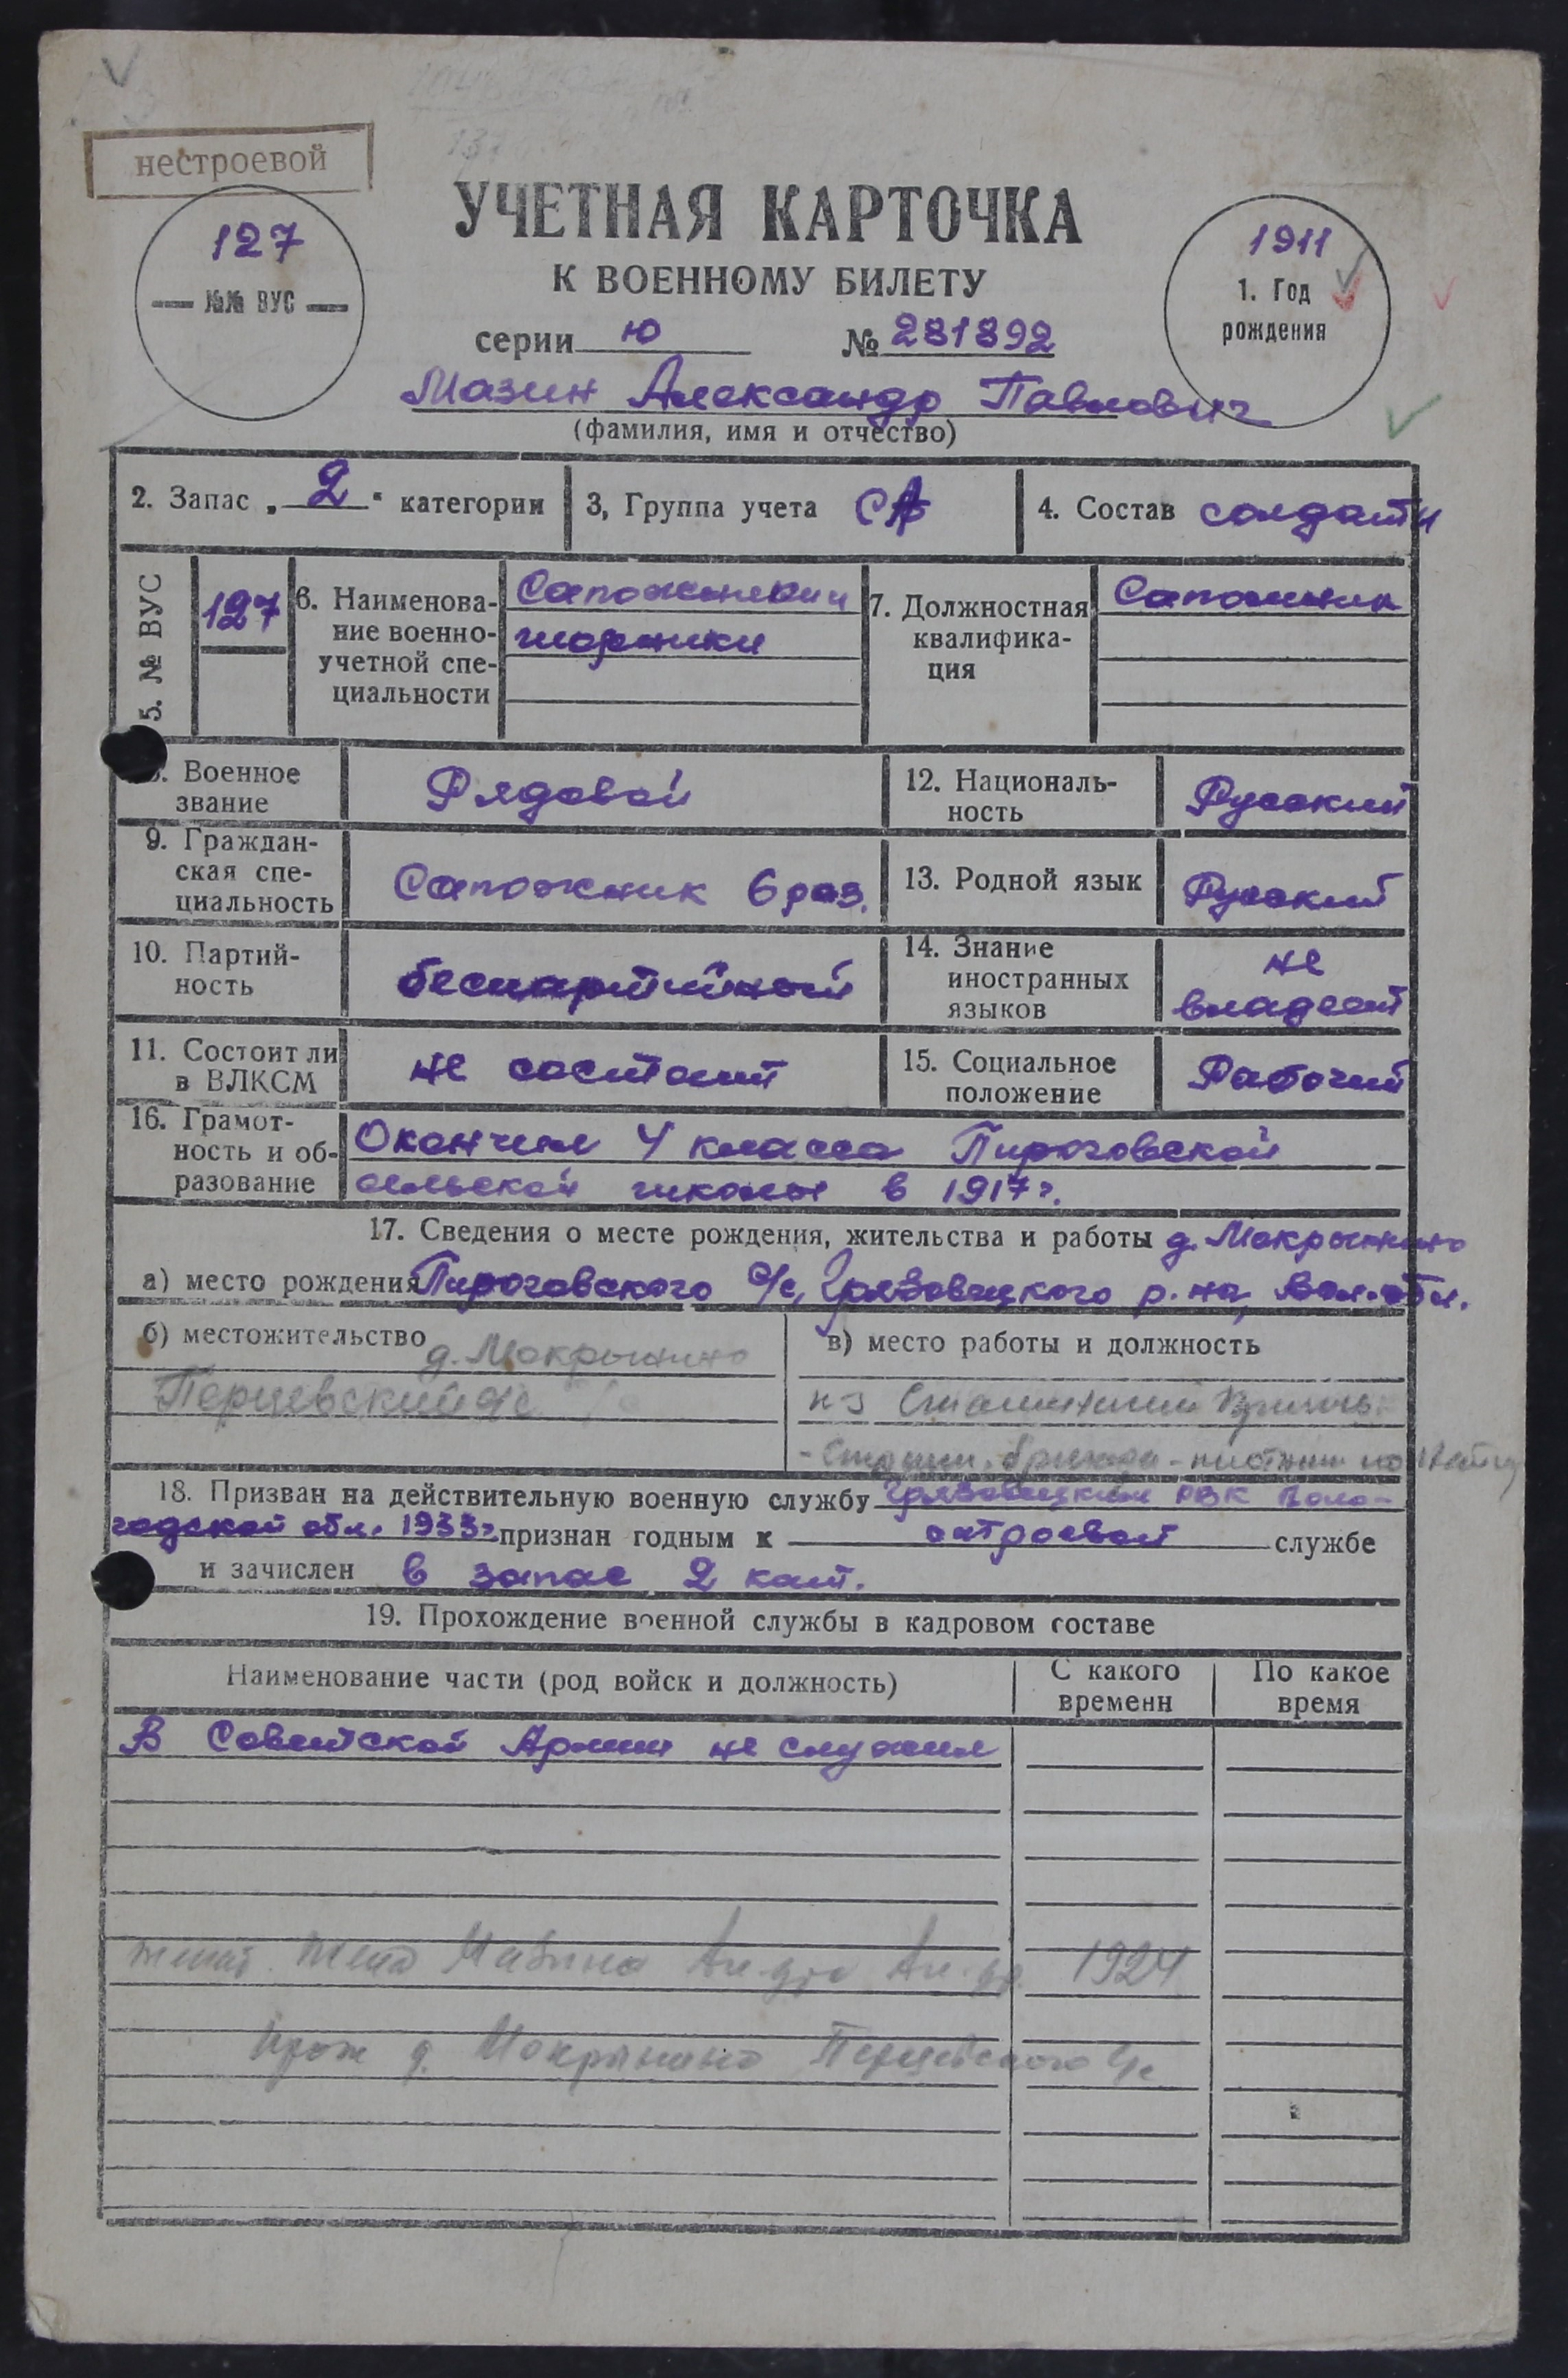 нестроевой
127
№№ ВУС
УЧЕТНАЯ КАРТОЧКА
К ВОЕННОМУ БИЛЕТУ
серии Ю № 281892
1911
1. Год
рождения
Мазин Александр Павлович
(фамилия, имя и отчество)
2. Запас „2" категории
3, Группа учета СА
4. Состав солдаты
5. № ВУС
127
6. Наименова-
ние военно-
учетной спе-
циальности
Сапожники и
шорники
7. Должностная
квалифика-
ция
Сапожник
8. Военное
звание
Рядовой
12. Националь-
ность
Русский
9. Граждан-
ская спе-
циальность
Сапожник 6 раз.
13. Родной язык
Русский
10. Партий-
ность
беспартийный
14. Знание
иностранных
языков
не
владеет
11. Состоит ли
в ВЛКСМ
не состоит
15. Социальное
положение
Рабочий
16. Грамот-
ность и об-
разование
Окончил 4 класса Пироговской
сельской школы в 1917г.
17. Сведения о месте рождения, жительства и работы д. Мокрынино
а) место рождения Пироговского с/с, Грязовецкого р-на, Вол. обл.
б) местожительство д. Мокрынино
Перцевский с/с
в) место работы и должность
к-з
18. Призван на действительную военную службу Грязовецким РВК Воло-
годской обл. 1933г признан годным к строевой службе
и зачислен в запас 2 кат.
19. Прохождение военной службы в кадровом составе
Наименование части (род войск и должность)
С какого
времени
По какое
время
В Советской Армии не служил
женат. жена Мазина Ал-дра Ал-др. 1924
прож д. Мокрынино Перцевского с/с